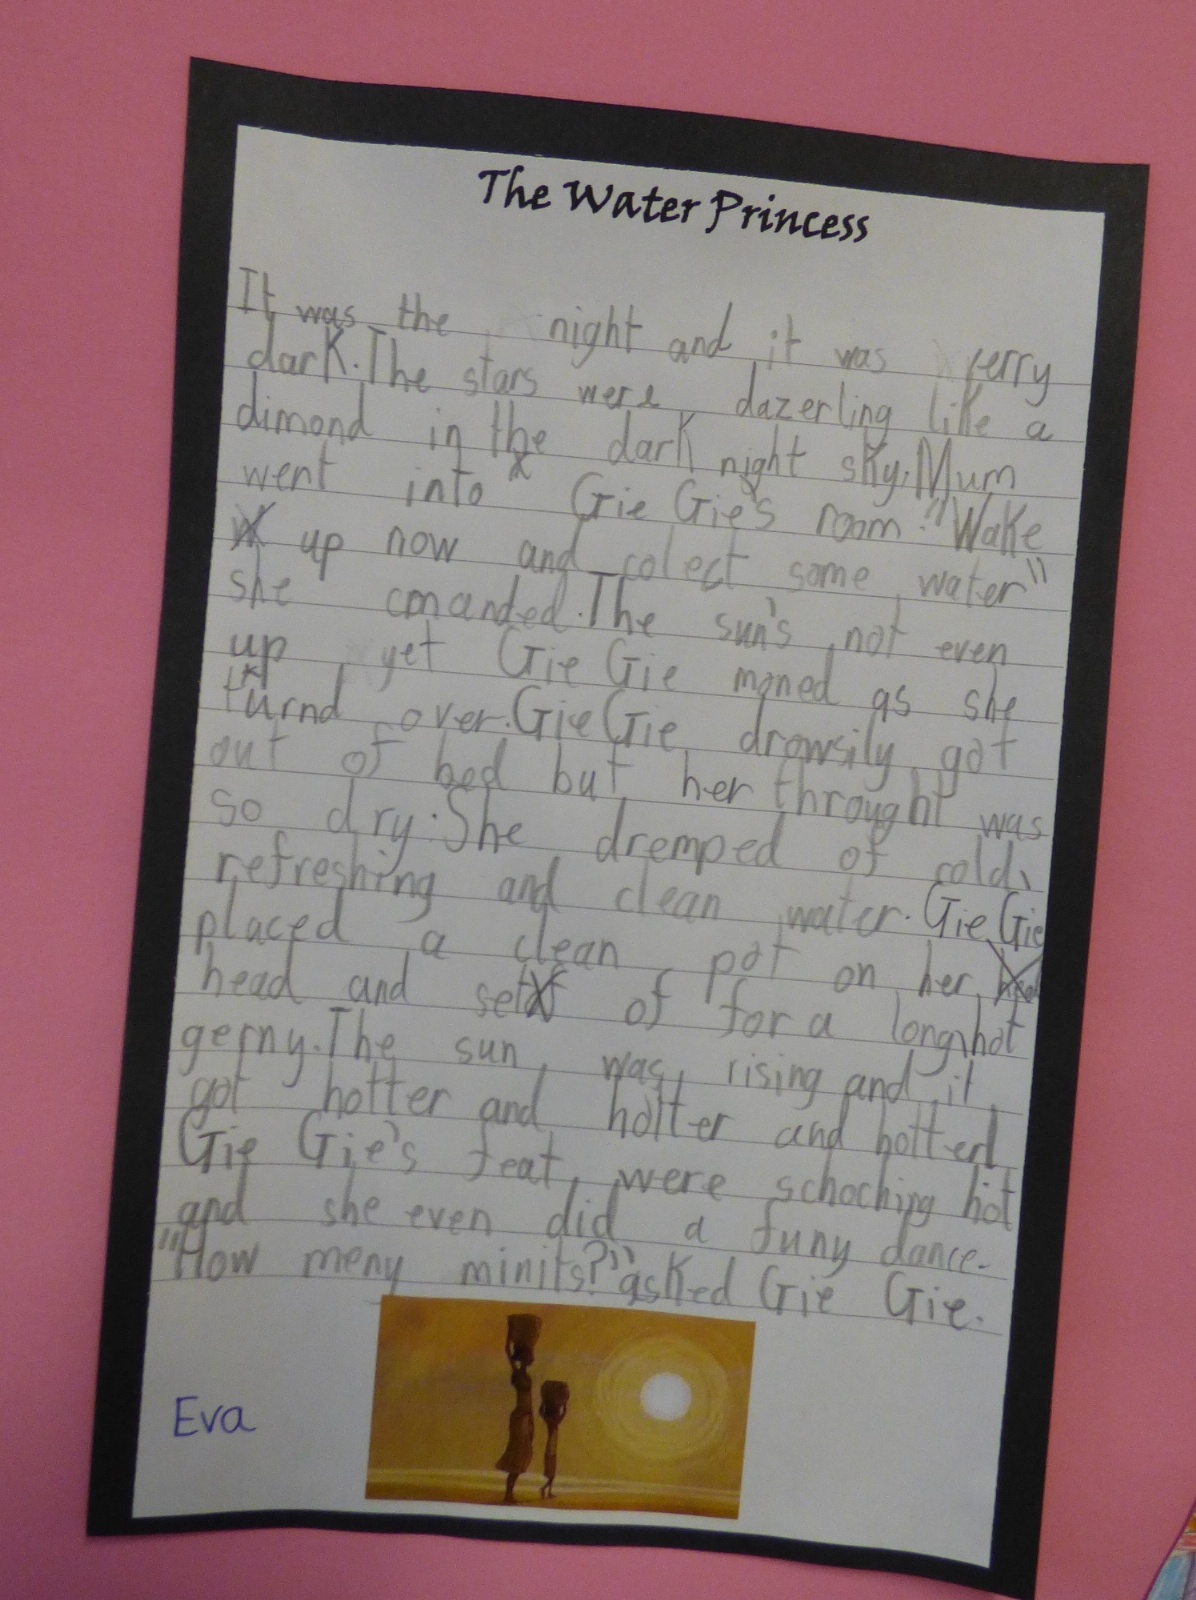 The Water Princess
It was the night and it was verry
dark. The stars were dazerling like a
dimond in the dark night sky. Mum
went into Gie Gie's room. "Wake
up now and colect some water"
she cmanded. The sun's not even
up yet Gie Gie moned as she
turnd over. Gie Gie drowsily got
out of bed but her throught was
so dry. She dremped of cold,
refreshing and clean water. Gie Gie
placed a clean pot on her
head and set of for a long, hot
gerny. The sun was rising and it
got hotter and hotter and hotter!
Gie Gie's feat were schoching hot
and she even did a funy dance.
"How meny minits?" asked Gie Gie.
Eva